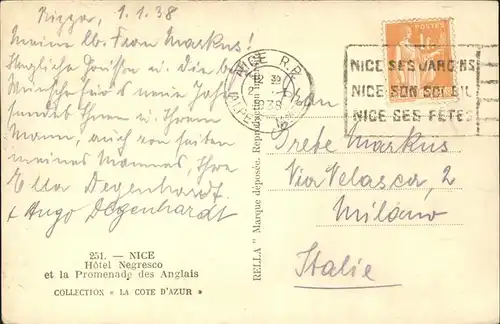 Nizza, 1.1.38
Meine lb. Frau Markus!
Herzliche Grüße u. die besten
Wünsche für's neue Jahr
sendet Ihnen u. Ihrem
Mann, auch von seiten
meines Mannes, Ihre
Ella Degenhardt.
+ Hugo Degenhardt
251. — NICE
Hôtel Negresco
et la Promenade des Anglais
COLLECTION « LA COTE D'AZUR »
RELLA " Marque déposée. Reproduction
NICE R.P.
2 - 1
1938
POSTES
NICE SES JARDINS
NICE SON SOLEIL
NICE SES FÊTES
Grete Markus
Via Velasca, 2
Milano
Italie